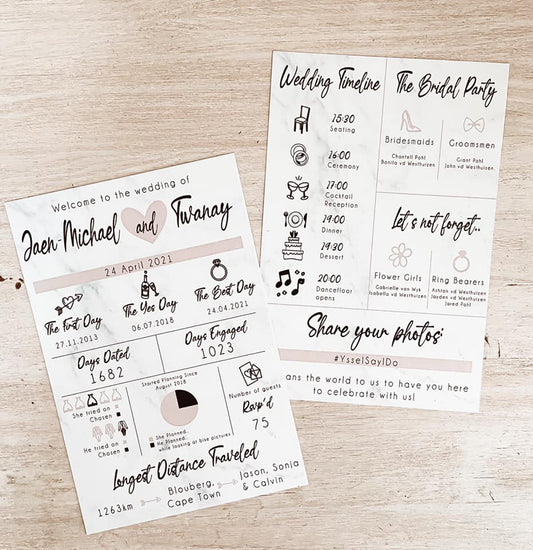 Welcome to the wedding of
Jaen-Michael and Twanay
24 April 2021
The First Day
27.11.2013
The Yes Day
06.07.2018
The Best Day
24.04.2021
Days Dated
1682
Days Engaged
1023
She tried on
Chosen
He tried on
Chosen
Started Planning Since
August 2018
She Planned...
He Planned...
while looking at bike pictures
Number of guests
Rsvp'd
75
Longest Distance Traveled
1263km
Blouberg,
Cape Town
Jason, Sonia
& Calvin
Wedding Timeline
15:30
Seating
16:00
Ceremony
17:00
Cocktail
Reception
19:00
Dinner
19:30
Dessert
20:00
Dancefloor
opens
The Bridal Party
Bridesmaids
Chantell Pohl
Bonita vd Westhuizen
Groomsmen
Grant Pohl
John vd Westhuizen
Let's not forget..
Flower Girls
Gabrielle van Wyk
Isabella vd Westhuizen
Ring Bearers
Ashton vd Westhuizen
Jayden vd Westhuizen
Jared Pohl
Share your photos:
#YsselSayIDo
ans the world to us to have you here
to celebrate with us!